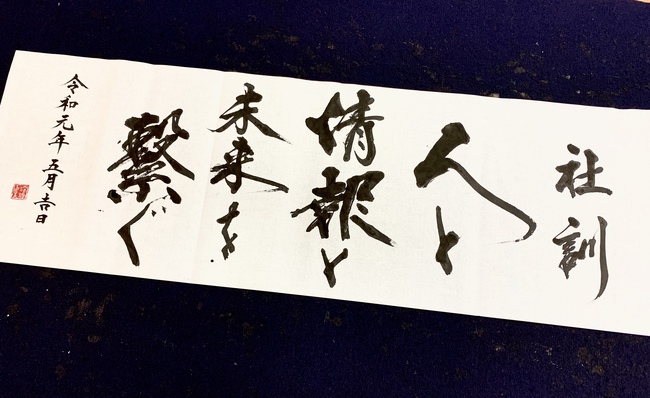 社訓
人と
情報と
未来を
繋ぐ
令和元年 五月 吉日